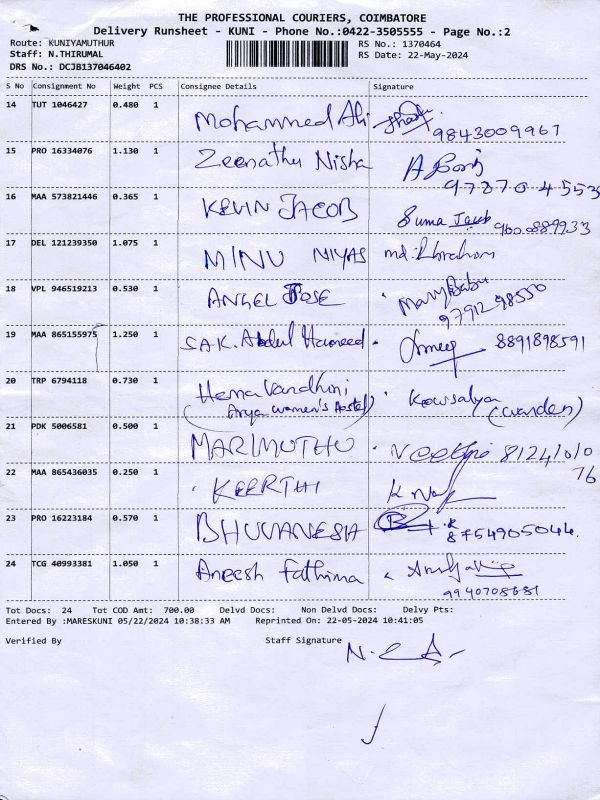 THE PROFESSIONAL COURIERS, COIMBATORE
Delivery Runsheet - KUNI - Phone No.:0422-3505555 - Page No.:2
Route: KUNIYAMUTHUR RS No.: 1370464
Staff: N.THIRUMAL RS Date: 22-May-2024
DRS No.: DCJB137046402
S No Consignment No Weight PCS Consignee Details Signature
14 TUT 1046427 0.480 1 Mohammed Ali
9843009967
15 PRO 16334076 1.130 1 Zeenathu Nisha
16 MAA 573821446 0.365 1 KEVIN JACOB Suma Jacob
17 DEL 121239350 1.075 1 MINU NIYAS md. Ibrahim
18 VPL 946519213 0.530 1 ANGEL JOSE Mary Babu
9791298550
19 MAA 865155975 1.250 1 S.A.K. Abdul Hameed 8891898591
20 TRP 6794118 0.730 1 Hema Vardhini Kowsalya
(Arya women's Hostel) (warden)
21 PDK 5006581 0.500 1 MARIMUTHU 81241010
76
22 MAA 865436035 0.250 1 KEERTHI
23 PRO 16223184 0.570 1 8754905044
24 TCG 40993381 1.050 1 Aneesh Fathima
9940708681
Tot Docs: 24 Tot COD Amt: 700.00 Delvd Docs: Non Delvd Docs: Delvy Pts:
Entered By :MARESKUNI 05/22/2024 10:38:33 AM Reprinted On: 22-05-2024 10:41:05
Verified By Staff Signature